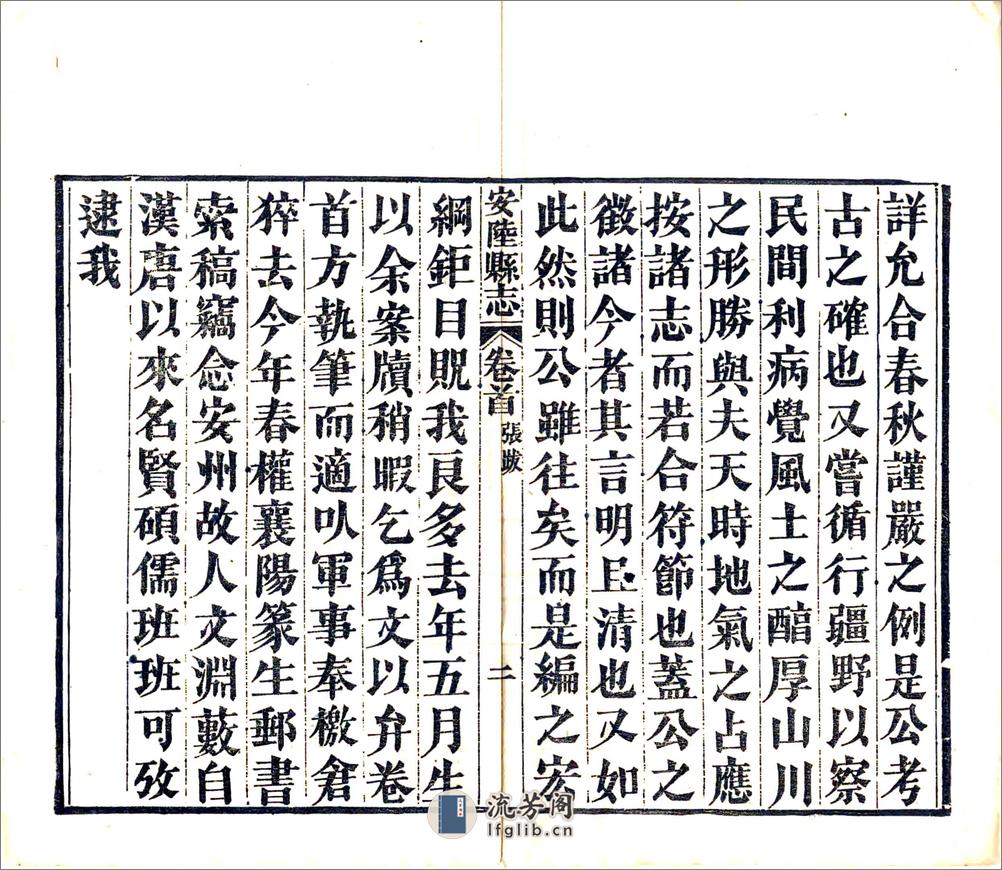 詳允合春秋謹嚴之例是公考
古之確也又嘗循行疆野以察
民間利病覺風土之醕厚山川
之形勝與夫天時地氣之占應
按諸志而若合符節也蓋公之
徵諸今者其言明且清也又如
此然則公雖往矣而是編之宏
安陸縣志 卷首 張跋 二
綱鉅目貺我良多去年五月生
以余案牘稍暇乞爲文以弁卷
首方執筆而適以軍事奉檄倉
猝去今年春權襄陽篆生郵書
索稿竊念安州故人文淵藪自
漢唐以來名賢碩儒班班可攷
逮我
流芳阁
lfglib.cn